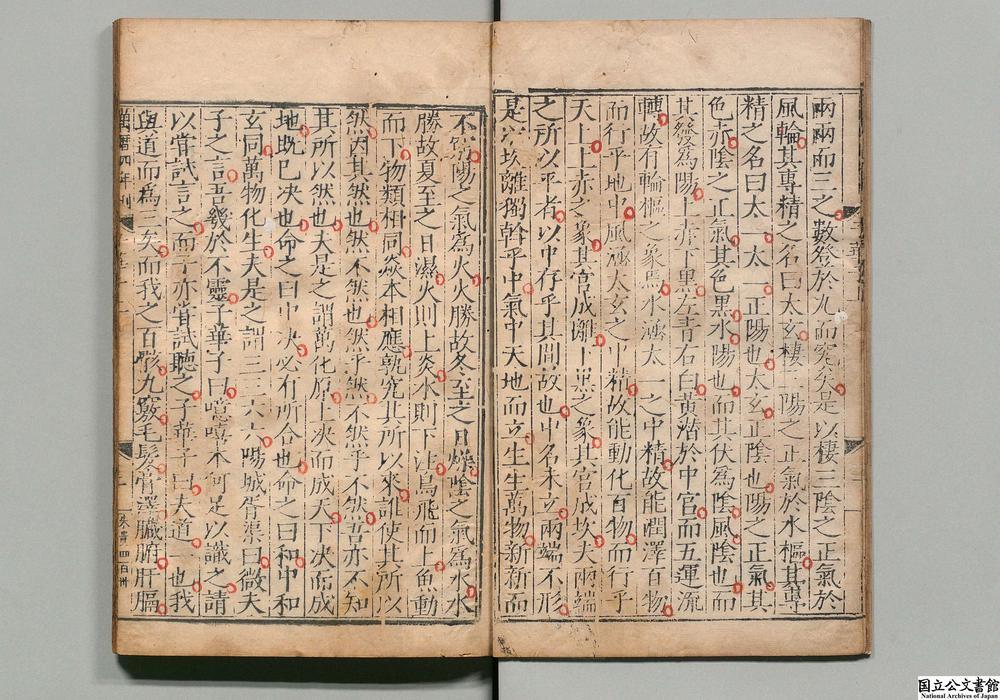 兩兩而三之數登於九而究矣是以棲三陰之正氣於
風輪其專精之名曰太玄棲三陽之正氣於水樞其專
精之名曰太一太一正陽也太玄正陰也陽之正氣其
色赤陰之正氣其色黑水陽也而其伏爲陰風陰也而
其發爲陽上赤下黑左青右白黃潛於中宮而五運流
轉故有輪樞之象焉水涵太一之中精故能潤澤百物
而行乎地中風涵太玄之中精故能動化百物而行乎
天上上赤之象其宮成離下黑之象其宮成坎夫兩端
之所以平者以中存乎其間故也中名未立兩端不形
是以坎離獨幹乎中氣中天地而立生生萬物新新而
不窮陽之氣爲火火勝故冬至之日燥陰之氣爲水水
勝故夏至之日濕火則上炎水則下注鳥飛而上魚動
而下物類相同焱本相應孰究其所以來誰使其所以
然因其然也然不然也然乎然不然乎不然吾亦不知
其所以然也夫是之謂萬化原上決而成天下決而成
地既已決也命之曰中決必有所合也命之曰和中和
玄同萬物化生夫是之謂三三六六陽城胥渠曰微夫
子之言吾幾於不靈子華子曰噫嘻本何足以識之請
以嘗試言之而子亦嘗試聽之子華子曰夫道一也我
與道而爲三矣而我之百骸九竅毛髮膏澤臟腑肝膈
萬曆四年刊
国立公文書館
National Archives of Japan